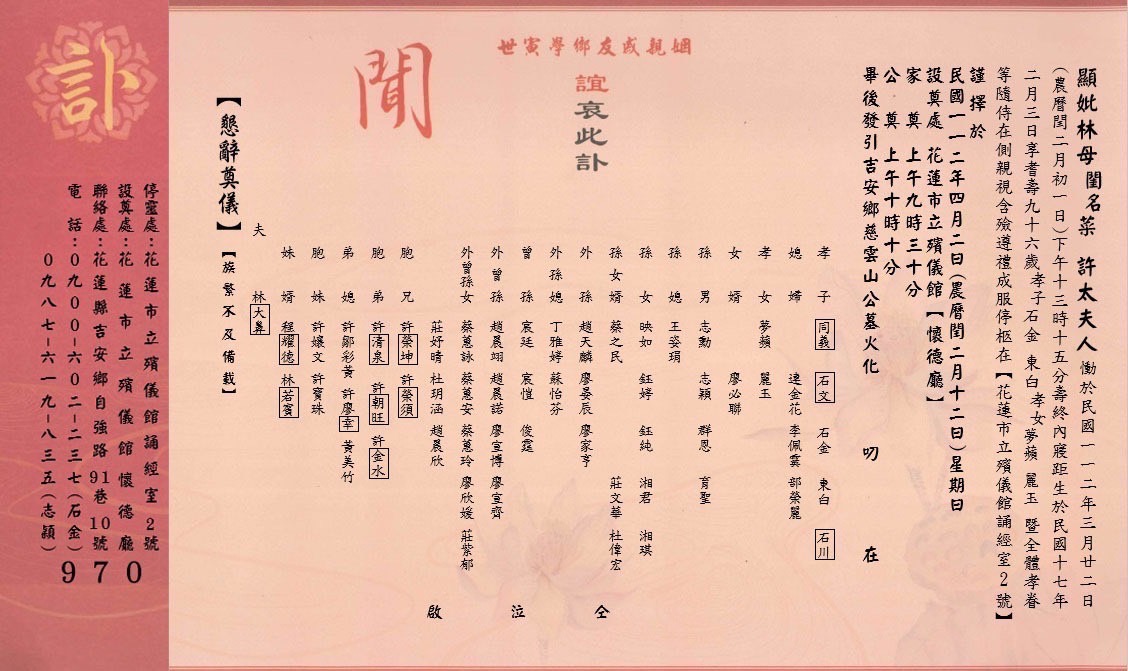 顯妣林母閨名菜 許太夫人 慟於民國一一二年三月廿二日
(農曆閏二月初一日)下午十三時十五分壽終內寢距生於民國十七年
二月三日享耆壽九十六歲孝子石金 東白孝女夢蘋 麗玉 暨全體孝眷
等隨侍在側親視含殮遵禮成服停柩在【花蓮市立殯儀館誦經室2號】
謹擇於
民國一一二年四月二日(農曆閏二月十二日)星期日
設奠處 花蓮市立殯儀館【懷德廳】
家奠 上午九時三十分
公奠 上午十時十分
畢後發引吉安鄉慈雲山公墓火化 叨 在
姻親戚友鄉學寅世
誼哀此訃
聞
孝子 同義 石文 石金 東白 石川
媳婦 達金花 李佩霙 部榮麗
孝女 夢蘋 麗玉
女婿 廖必聯
孫男 志勳 志穎 群恩 育聖
孫媳 王姿琄
孫女 映如 鈺婷 鈺純 湘君 湘琪
孫女婿 蔡之民 莊文華 杜偉宏
外孫 趙天麟 廖晏辰 廖家亨
外孫媳 丁雅婷 蘇怡芬
曾孫 宸廷 宸愷 俊霆
外曾孫 趙晨翊 趙晨諾 廖宣博 廖宣齊
外曾孫女 蔡蕙詠 蔡蕙安 蔡蕙玲 廖欣媛 莊紫郁
莊妤晴 杜玥涵 趙晨欣
胞兄 許榮坤 許榮須
胞弟 許清泉 許朝旺 許金水
弟媳 許鄒彩黃 許廖幸 黃美竹
胞妹 許孃文 許寶珠
妹婿 程耀德 林若賓
夫 林大鼻
仝 泣 啟
【懇辭奠儀】【族繁不及備載】
訃
停靈處：花蓮市立殯儀館誦經室2號
設奠處：花蓮市立殯儀館懷德廳
聯絡處：花蓮縣吉安鄉自強路91巷10號
電話：０９００-６０２-２３７(石金)
０９８７-６１９-８３５(志穎)
970